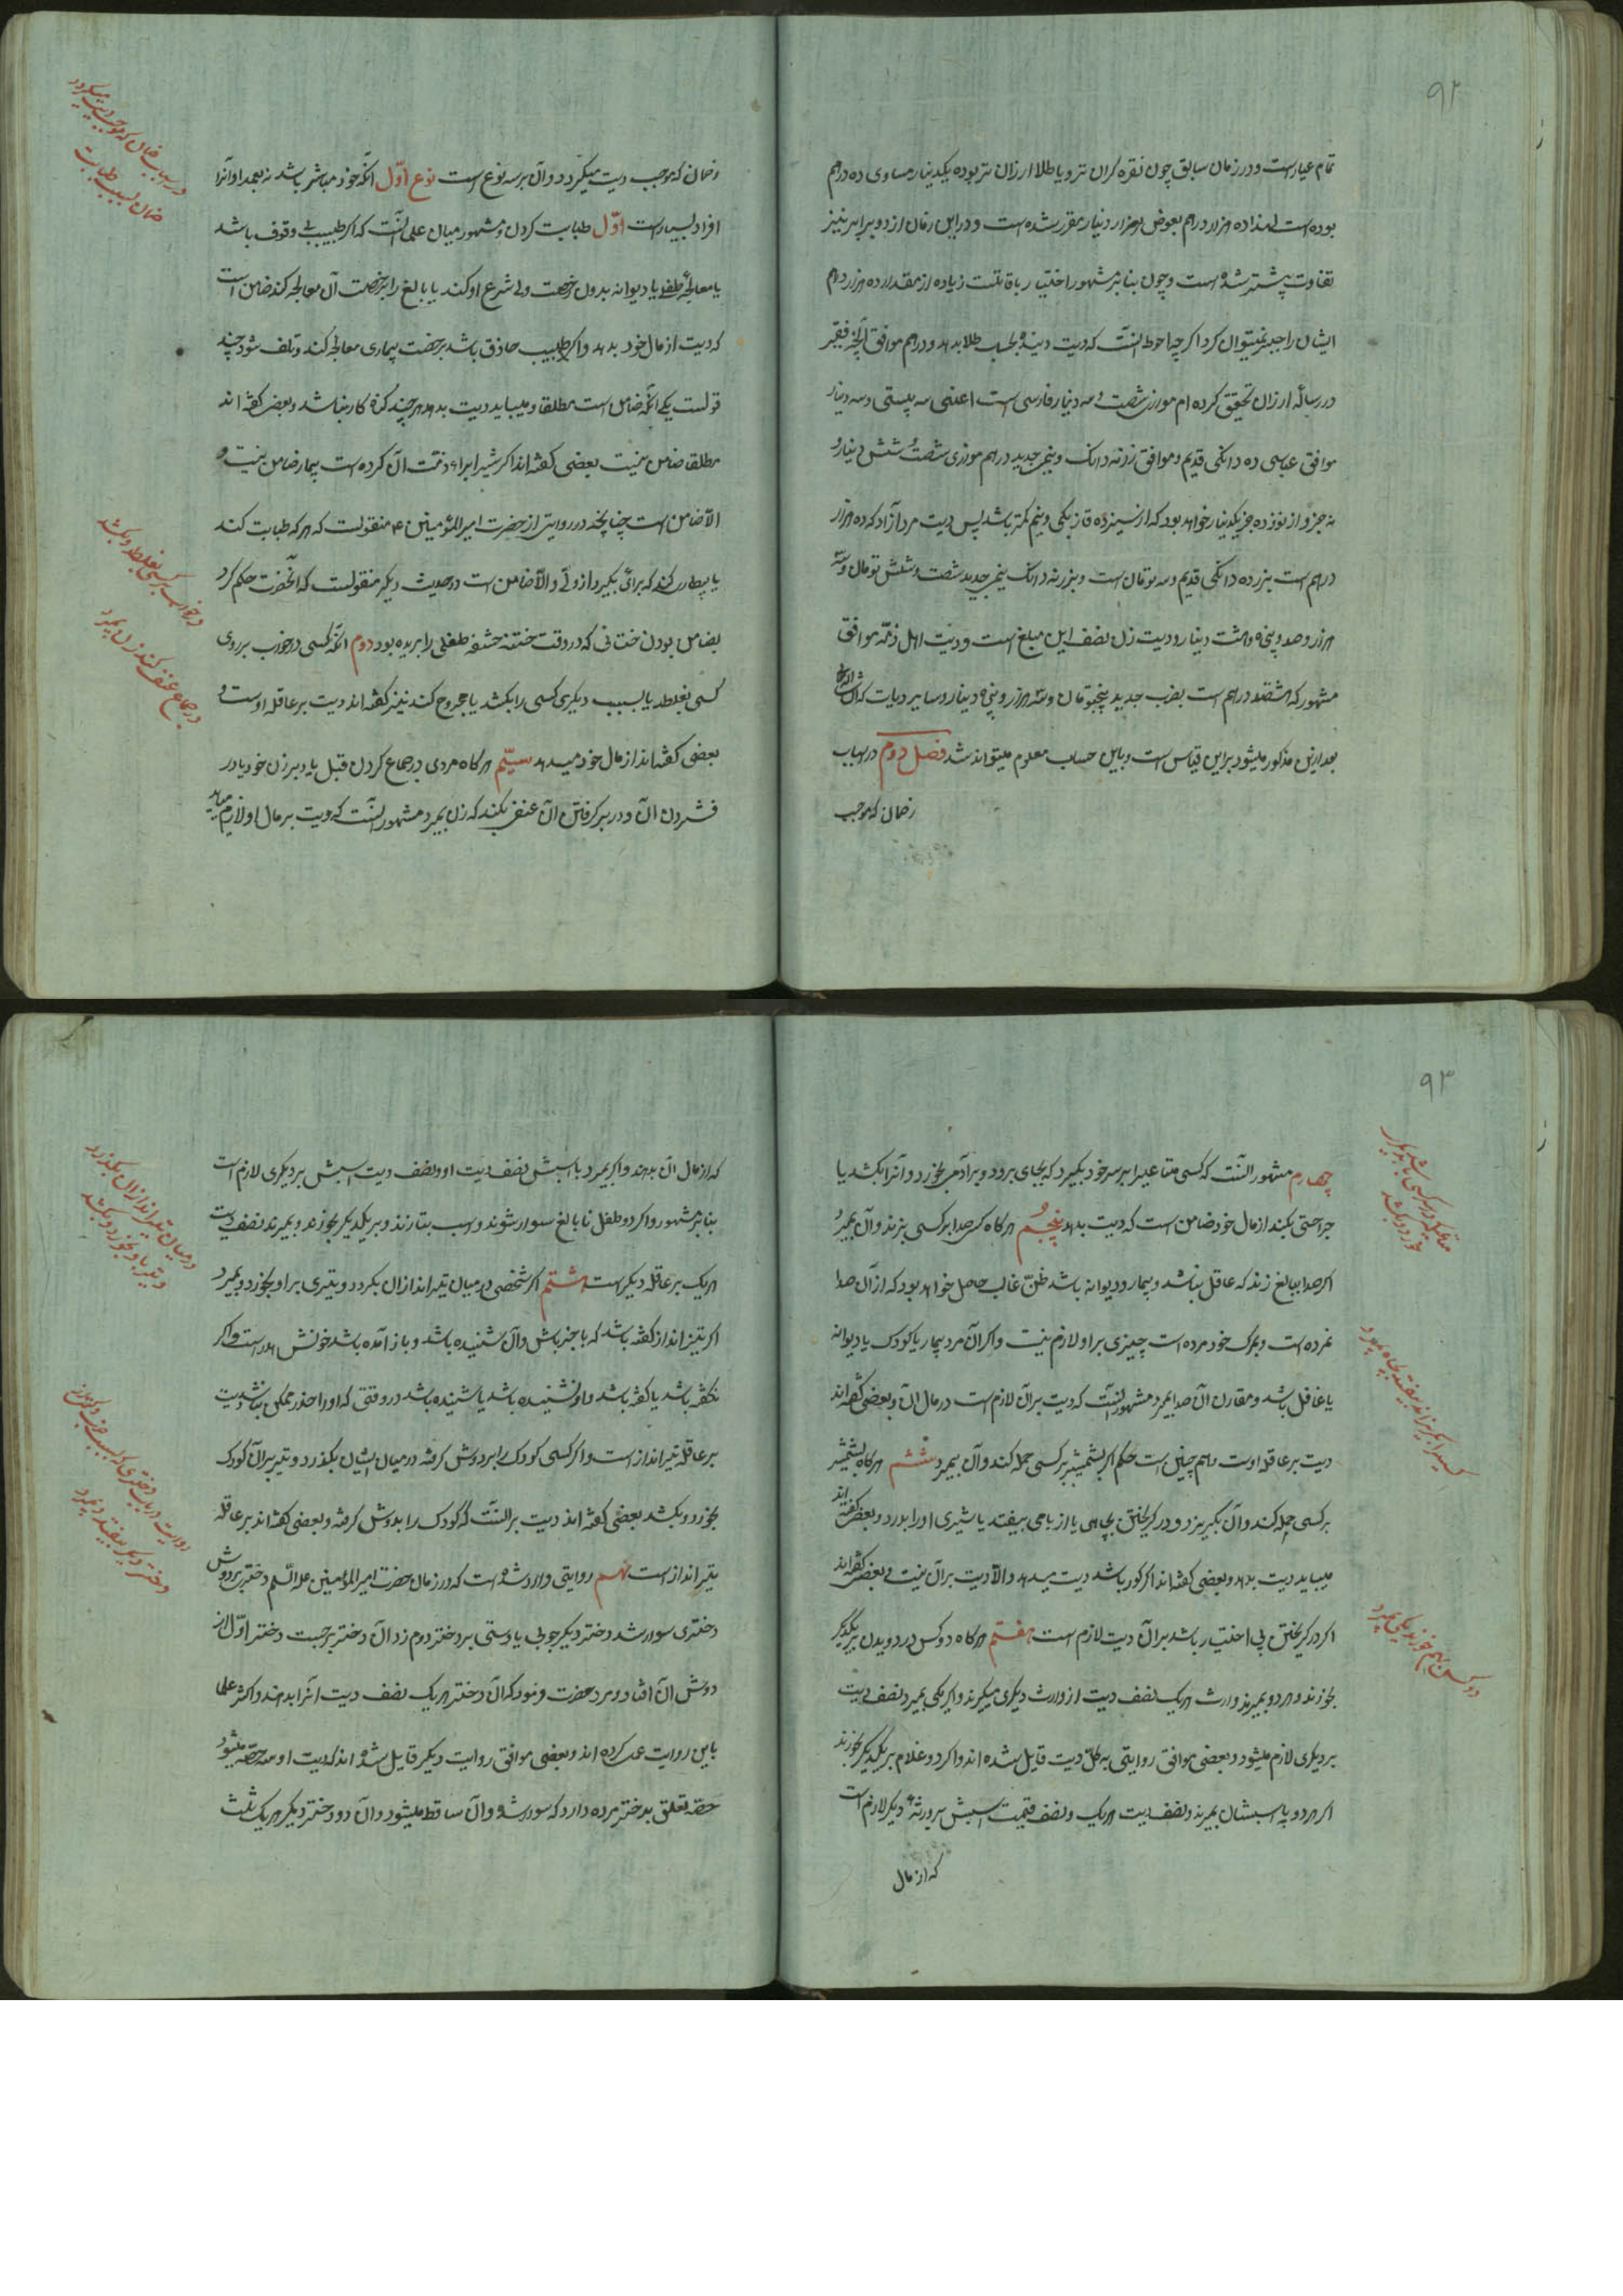 ۹۲
تمام عیارست و در زمان سابق چون نقره کران تر و یا طلا ارزان تر بوده یکدینار مساوی ده درهم
بوده است لهذا ده هزار درهم بعوض هزار دینار مقرر شده است و در این زمان از دو برابر نیز
تفاوت بیشتر شده است و چون بنا بر مشهور اختیار با قاتلست زیاده از مقدار ده هزار درهم
ایشان را جبر نمیتوان کرد اکر چه احوط آنست که دیت دینه بحسب طلا بدهد و درهم موافق آنچه فقیر
در رساله ارزان تحقیق کرده ام موازی شصت و سه دینار فارسی است اعنی سه بیستی و سه دینار
موافق عباسی ده دانکی قدیم و موافق زر نه دانک و نیم جدید درهم موازی شصت و شش دینار و
نه جزو از نوزده جزو یکدینار خواهد بود که از سیزده قاز بکی و نیم کمتر باشد پس دیت مرد آزاد که ده هزار
درهم است بزر ده دانکی قدیم و سه تومان است و بزر نه دانک نیم جدید شصت و شش تومان و سه
هزار و صد و پنجاه و هشت دینار و دیت زن نصف این مبلغ است و دیت اهل ذمّه موافق
مشهور که هشتصد درهم است بضرب جدید پنجتومان و سه هزار و پنجاه دینار و سایر دیات که ان شاء الله
بعد ازین مذکور میشود برین قیاس است و باین حساب معلوم میتواند شد فصل دوم در اسباب
زضمان که موجب
زضمان که موجب دیت میکردد و آن بر سه نوع است نوع اوّل آنکه خود مباشر باشد نه بعمد او آنرا
افراد بسیارست اوّل طبابت کردن و مشهور میان علما آنست که اکر طبیب بی وقوف باشد
یا معالجهٔ طفلی یا دیوانه بدون رخصت ولی شرع او کند یا بالغ را برخصت آن معالجه کند ضامن است
که دیت از مال خود بدهد و اکر طبیب حاذق باشد برخصت بیماری معالجه کند و تلف شود چند
قولست یکی آنکه ضامن است مطلقا و میباید دیت بدهد هر چند کوتاه کار نباشد و بعضی کفته اند
مطلقا ضامن نیست بعضی کفته اند اکر بیشتر ابراء ذمّت آن کرده است بیمار ضامن نیست و
الّا ضامن است چنانچه در روایتی از حضرت امیر المؤمنین ع منقولست که هر که طبابت کند
یا بیطاری کند که برائی بکیرد از ولّی و الّا ضامن است در حدیث دیکر منقولست که آنحضرت حکم کرد
بضامن بودن ختانی که در وقت ختنه حشفه طفلی را بریده بود دوم آنکه کسی در خواب بر روی
کسی بغلطد یا بسبب دیکری کسی را بکشد یا مجروح کند نیز کفته اند دیت بر عاقله اوست و
بعضی کفته اند از مال خود میدهد سیّم هر کاه مردی در جماع کردن قبل یا دبر زن خود یا در
فشردن آن و در بر کرفتن آن عنفی بکند که زن بمیرد مشهور آنست که دیت بر مال او لازم میاید
در اسباب ضمان که موجب دیت میکردد
ضمان بسبب طبابت
در خواب بر کسی بغلطد و بکشد
در جماع عنف کند و زن بمیرد
۹۳
چهارم مشهور آنست که کسی متاعیرا بر سر خود بکیرد که بجای برد و بر آدمی بخورد و آنرا بکشد یا
جراحتی بکند از مال خود ضامن است که دیت بدهد پنجم هر کاه کسی صدا بر کسی بزند و آن بمیرد
اکر صدا ببالغ زند که عاقل باشد و بیمار و دیوانه نباشد ظنّ غالب حاصل خواهد بود که از آن صدا
نمرده است و بمرک خود مرده است چیزی بر او لازم نیست و اکر آن مرد بیمار یا کودک یا دیوانه
یا غافل باشد و مقارن آن صدا بمیرد مشهور آنست که دیت بر آن لازم است در مال آن و بعضی کفته اند
دیت بر عاقله اوست و هم چنین است حکم اکر بشمشیر بر کسی حمله کند و آن بمیرد ششم هر کاه بشمشیر
بر کسی حمله کند و آن بکریزد و در کریختن بچاهی یا از بامی بیفتد یا شیری او را بدرد و بعضی کفته اند
میباید دیت بدهد و بعضی کفته اند اکر کور باشد دیت میدهد و الّا دیت بر آن نیست و بعضی کفته اند
اکر در کریختن بی اختیار باشد بر آن دیت لازم است هفتم هر کاه دو کس در دویدن بر یکدیکر
بخورند و هر دو بمیرند وارث هر یک نصف دیت از وارث دیکری میکیرند و اکر یکی بمیرد نصف دیت
بر دیکری لازم میشود و بعضی موافق روایتی به کلّ دیت قایل شده اند و اکر دو غلام بر یکدیکر بخورند
اکر هر دو با اسبشان بمیرند و نصف دیت هر یک و نصف قیمت اسبش بر ورثهٔ دیکر لازم است
که از مال
متاعیکه در سر کسی باشد بدیکر خورد و بکشد
کسیرا بکریزاند بیفتد بچاه و بمیرد
دو کس بهم خورند و یکی بمیرد
که از مال آن بدهند و اکر بمیرد با اسبش نصف دیت او و نصف دیت اسبش بر دیکری لازم است
بنا بر مشهور و اکر دو طفل نابالغ سوار شوند و اسب بتازند و بر یکدیکر بخورند و بمیرند نصف دیت
هر یک بر عاقله دیکرست هشتم اکر شخصی در میان تیر اندازان بکردد و تیری بر او بخورد و بمیرد
اکر تیر انداز کفته باشد که با خبر باش و آن شنیده باشد و باز آمده باشد خونش هدر است و اکر
نکفته باشد یا کفته باشد و او نشنیده باشد یا شنیده باشد در وقتی که او را حذر ممکن نباشد دیت
بر عاقله تیر انداز است و اکر کسی کودک را بر دوش کرفته در میان ایشان بکذرد و تیر بر آن کودک
بخورد و بکشد بعضی کفته اند دیت بر آنست که کودک را بدوش کرفته و بعضی کفته اند بر عاقله
تیر انداز است نهم روایتی وارد شده است که در زمان حضرت امیر المؤمنین علیه السّلم دختر بر دوش
دختری سوار شد دختر دیکر چوبی یا دستی بر دختر دوم زد آن دختر برجست دختر اوّل از
دوش آن افتاد و مرد حضرت فرمود که آن دو دختر هر یک نصف دیت آنرا بدهند و اکثر علما
باین روایت عمل کرده اند و بعضی موافق روایت دیکر قایل شده اند که دیت او سه حصّه میشود
حصّه تعلق بدختر مرده دارد که سوار شده و آن ساقط میشود و آن دو دختر دیکر هر یک ثلث
در میان تیر اندازان بکذرد
و تیر باو بخورد و بکشد
و دختر دیکر بیفتد و بمیرد